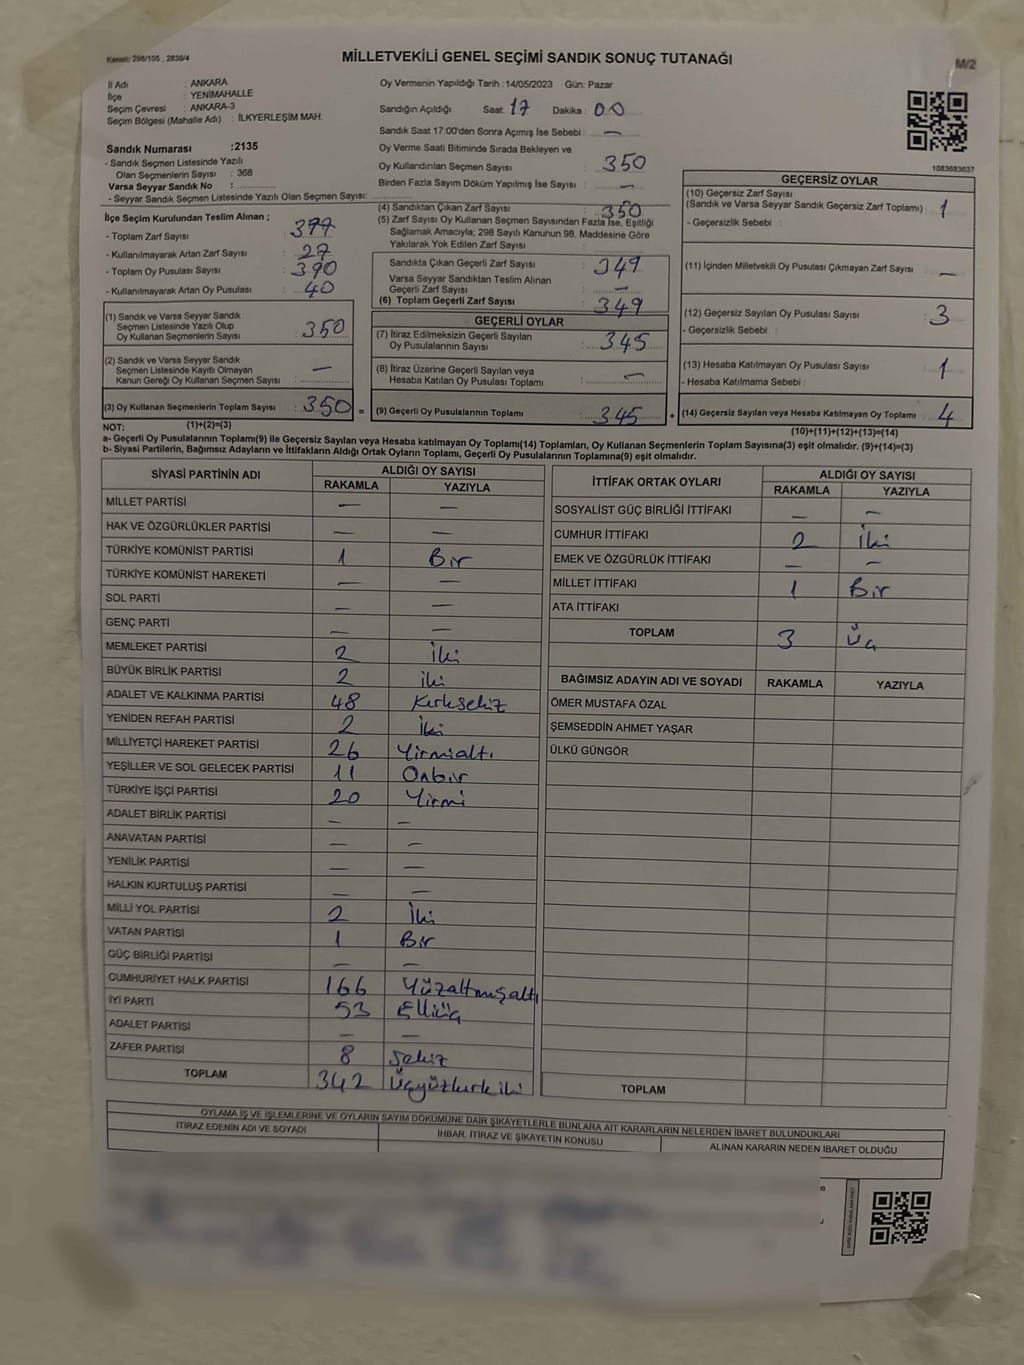 Kanun: 298/105 , 2839/4
MİLLETVEKİLİ GENEL SEÇİMİ SANDIK SONUÇ TUTANAĞI
M/2
İl Adı : ANKARA
İlçe : YENİMAHALLE
Seçim Çevresi : ANKARA-3
Seçim Bölgesi (Mahalle Adı) : İLKYERLEŞİM MAH.
Sandık Numarası :2135
- Sandık Seçmen Listesinde Yazılı
Olan Seçmenlerin Sayısı : 368
Varsa Seyyar Sandık No :
- Seyyar Sandık Seçmen Listesinde Yazılı Olan Seçmen Sayısı:
Oy Vermenin Yapıldığı Tarih :14/05/2023 Gün: Pazar
Sandığın Açıldığı Saat: 17 Dakika : 00
Sandık Saat 17:00'den Sonra Açımış İse Sebebi : —
Oy Verme Saati Bitiminde Sırada Bekleyen ve
Oy Kullandırılan Seçmen Sayısı : 350
Birden Fazla Sayım Döküm Yapılmış İse Sayısı : —
1083683637
İlçe Seçim Kurulundan Teslim Alınan ;
- Toplam Zarf Sayısı : 377
- Kullanılmayarak Artan Zarf Sayısı : 27
- Toplam Oy Pusulası Sayısı : 390
- Kullanılmayarak Artan Oy Pusulası : 40
(1) Sandık ve Varsa Seyyar Sandık
Seçmen Listesinde Yazılı Olup
Oy Kullanan Seçmenlerin Sayısı : 350
(2) Sandık ve Varsa Seyyar Sandık
Seçmen Listesinde Kayıtlı Olmayan
Kanun Gereği Oy Kullanan Seçmen Sayısı : —
(3) Oy Kullanan Seçmenlerin Toplam Sayısı : 350 =
(4) Sandıktan Çıkan Zarf Sayısı : 350
(5) Zarf Sayısı Oy Kullanan Seçmen Sayısından Fazla İse, Eşitliği
Sağlamak Amacıyla; 298 Sayılı Kanunun 98. Maddesine Göre
Yakılarak Yok Edilen Zarf Sayısı :
Sandıkta Çıkan Geçerli Zarf Sayısı : 349
Varsa Seyyar Sandıktan Teslim Alınan
Geçerli Zarf Sayısı : —
(6) Toplam Geçerli Zarf Sayısı : 349
GEÇERLİ OYLAR
(7) İtiraz Edilmeksizin Geçerli Sayılan
Oy Pusulalarının Sayısı : 345
(8) İtiraz Üzerine Geçerli Sayılan veya
Hesaba Katılan Oy Pusulası Toplamı : —
(9) Geçerli Oy Pusulalarının Toplamı : 345 +
GEÇERSİZ OYLAR
(10) Geçersiz Zarf Sayısı
(Sandık ve Varsa Seyyar Sandık Geçersiz Zarf Toplamı) : 1
- Geçersizlik Sebebi :
(11) İçinden Milletvekili Oy Pusulası Çıkmayan Zarf Sayısı : —
(12) Geçersiz Sayılan Oy Pusulası Sayısı : 3
- Geçersizlik Sebebi :
(13) Hesaba Katılmayan Oy Pusulası Sayısı : 1
- Hesaba Katılmama Sebebi :
(14) Geçersiz Sayılan veya Hesaba Katılmayan Oy Toplamı : 4
(10)+(11)+(12)+(13)=(14)
NOT: (1)+(2)=(3)
a- Geçerli Oy Pusulalarının Toplamı(9) ile Geçersiz Sayılan veya Hesaba katılmayan Oy Toplamı(14) Toplamları, Oy Kullanan Seçmenlerin Toplam Sayısına(3) eşit olmalıdır. (9)+(14)=(3)
b- Siyasi Partilerin, Bağımsız Adayların ve İttifakların Aldığı Ortak Oyların Toplamı, Geçerli Oy Pusulalarının Toplamına(9) eşit olmalıdır.
SİYASİ PARTİNİN ADI ALDIĞI OY SAYISI
RAKAMLA YAZIYLA
MİLLET PARTİSİ — —
HAK VE ÖZGÜRLÜKLER PARTİSİ — —
TÜRKİYE KOMÜNİST PARTİSİ 1 Bir
TÜRKİYE KOMÜNİST HAREKETİ — —
SOL PARTİ — —
GENÇ PARTİ — —
MEMLEKET PARTİSİ 2 İki
BÜYÜK BİRLİK PARTİSİ 2 iki
ADALET VE KALKINMA PARTİSİ 48 Kırksekiz
YENİDEN REFAH PARTİSİ 2 İki
MİLLİYETÇİ HAREKET PARTİSİ 26 Yirmialtı
YEŞİLLER VE SOL GELECEK PARTİSİ 11 Onbir
TÜRKİYE İŞÇİ PARTİSİ 20 Yirmi
ADALET BİRLİK PARTİSİ — —
ANAVATAN PARTİSİ — —
YENİLİK PARTİSİ — —
HALKIN KURTULUŞ PARTİSİ — —
MİLLİ YOL PARTİSİ 2 İki
VATAN PARTİSİ 1 Bir
GÜÇ BİRLİĞİ PARTİSİ — —
CUMHURİYET HALK PARTİSİ 166 Yüzaltmışaltı
İYİ PARTİ 53 Elliüç
ADALET PARTİSİ — —
ZAFER PARTİSİ 8 Sekiz
TOPLAM 342 Üçyüzkırkiki
İTTİFAK ORTAK OYLARI ALDIĞI OY SAYISI
RAKAMLA YAZIYLA
SOSYALİST GÜÇ BİRLİĞİ İTTİFAKI — —
CUMHUR İTTİFAKI 2 İki
EMEK VE ÖZGÜRLÜK İTTİFAKI — —
MİLLET İTTİFAKI 1 Bir
ATA İTTİFAKI
TOPLAM 3 Üç
BAĞIMSIZ ADAYIN ADI VE SOYADI RAKAMLA YAZIYLA
ÖMER MUSTAFA ÖZAL
ŞEMSEDDİN AHMET YAŞAR
ÜLKÜ GÜNGÖR
TOPLAM
OYLAMA İŞ VE İŞLEMLERİNE VE OYLARIN SAYIM DÖKÜMÜNE DAİR ŞİKAYETLERLE BUNLARA AİT KARARLARIN NELERDEN İBARET BULUNDUKLARI
İTİRAZ EDENİN ADI VE SOYADI İHBAR, İTİRAZ VE ŞİKAYETİN KONUSU ALINAN KARARIN NEDEN İBARET OLDUĞU